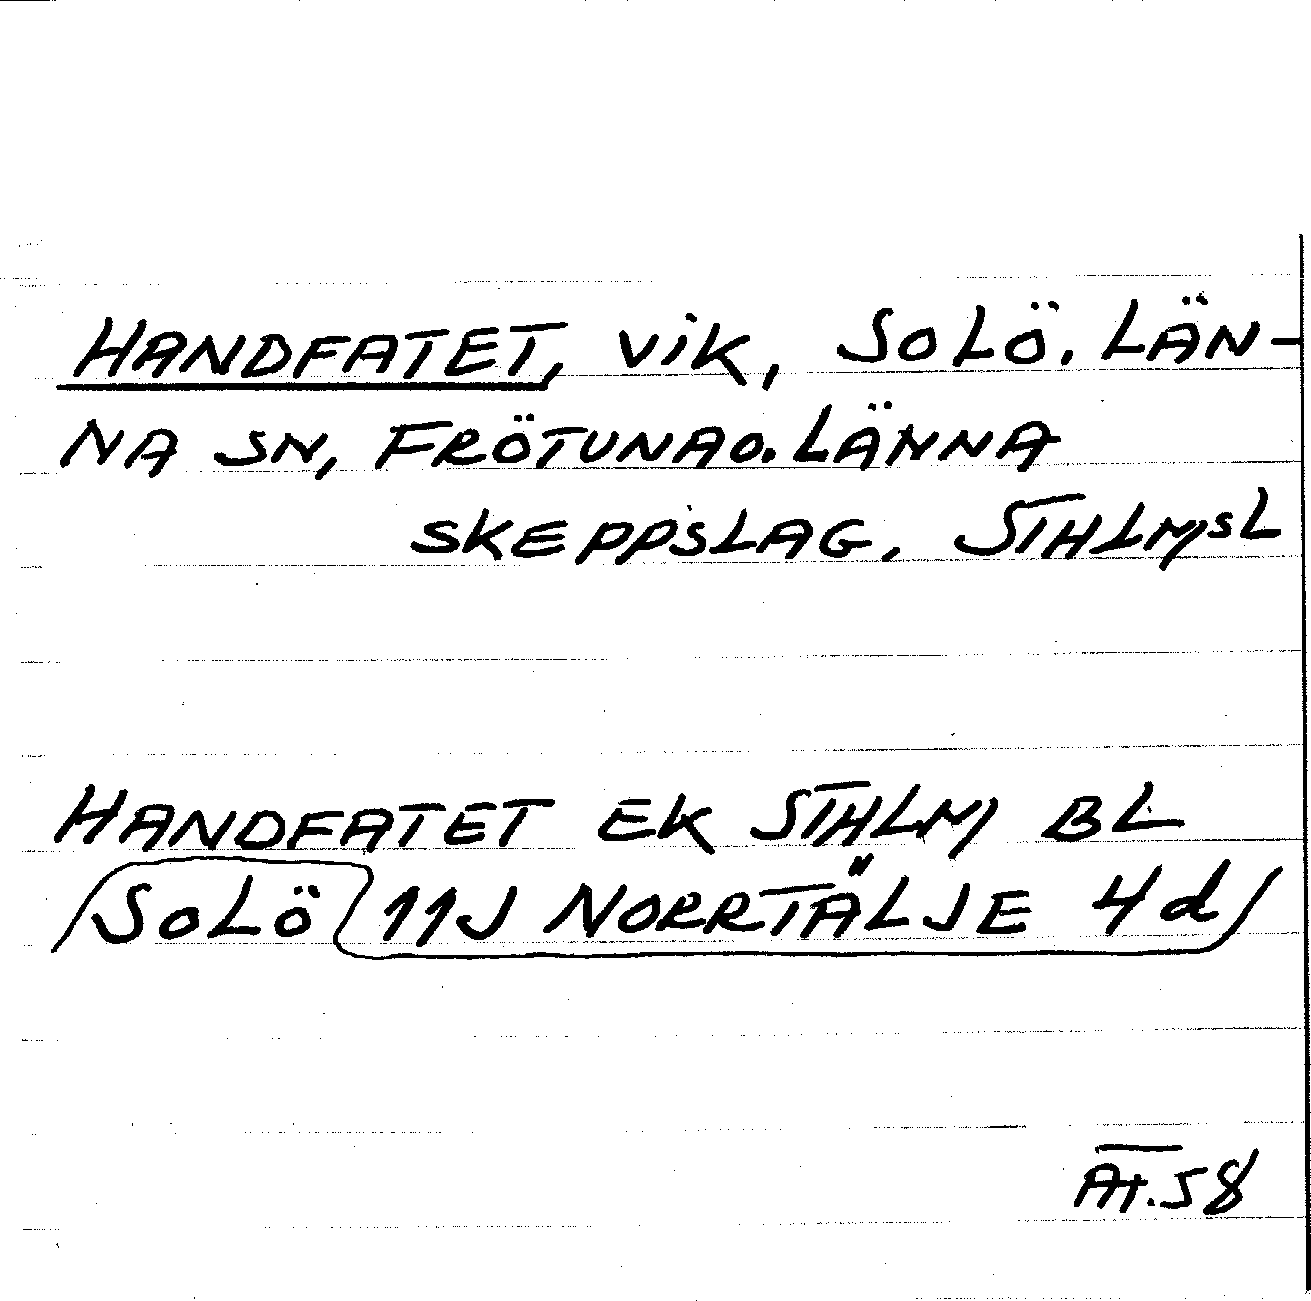 HANDFATET, VIK, SOLÖ. LÄN-
NA SN, FRÖTUNA O. LÄNNA
SKEPPSLAG. STHLMSL
HANDFATET EK STHLM BL
SOLÖ 11J NORRTÄLJE 4d
At. 58